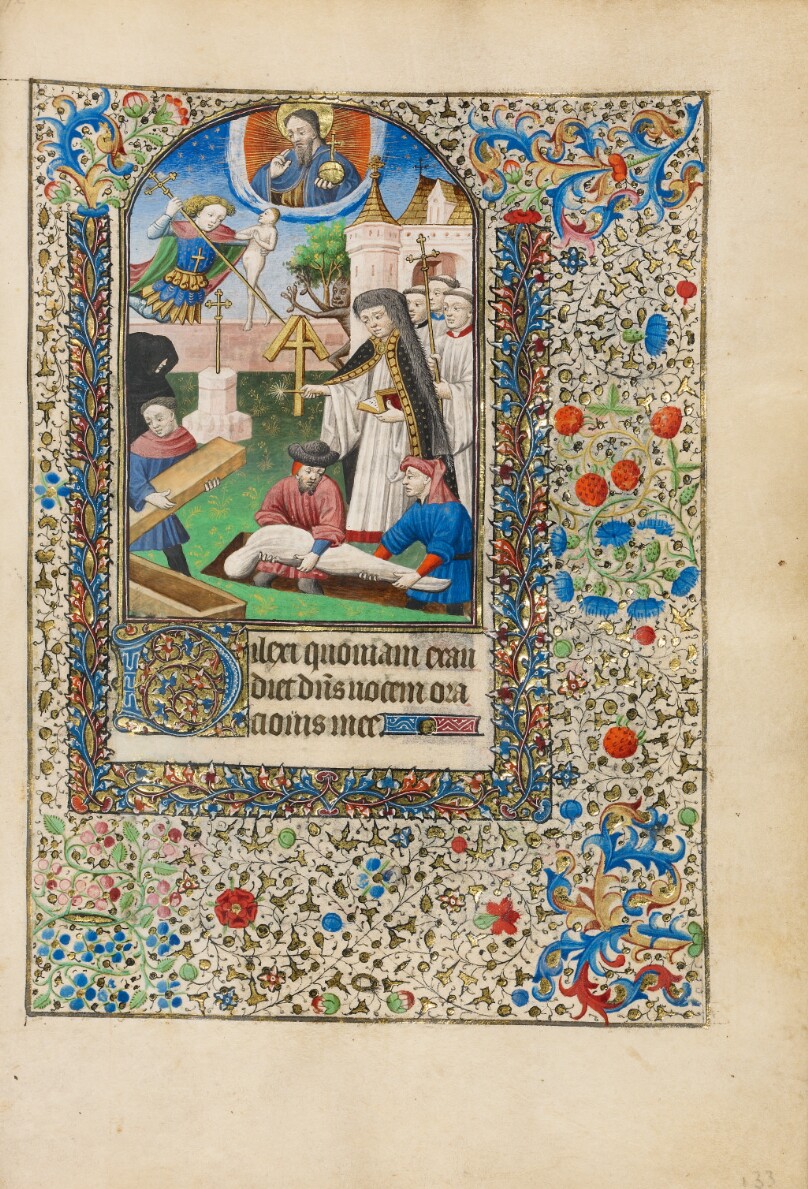 Dilexi quoniam exau
diet dñs uocem ora
cionis mee
133